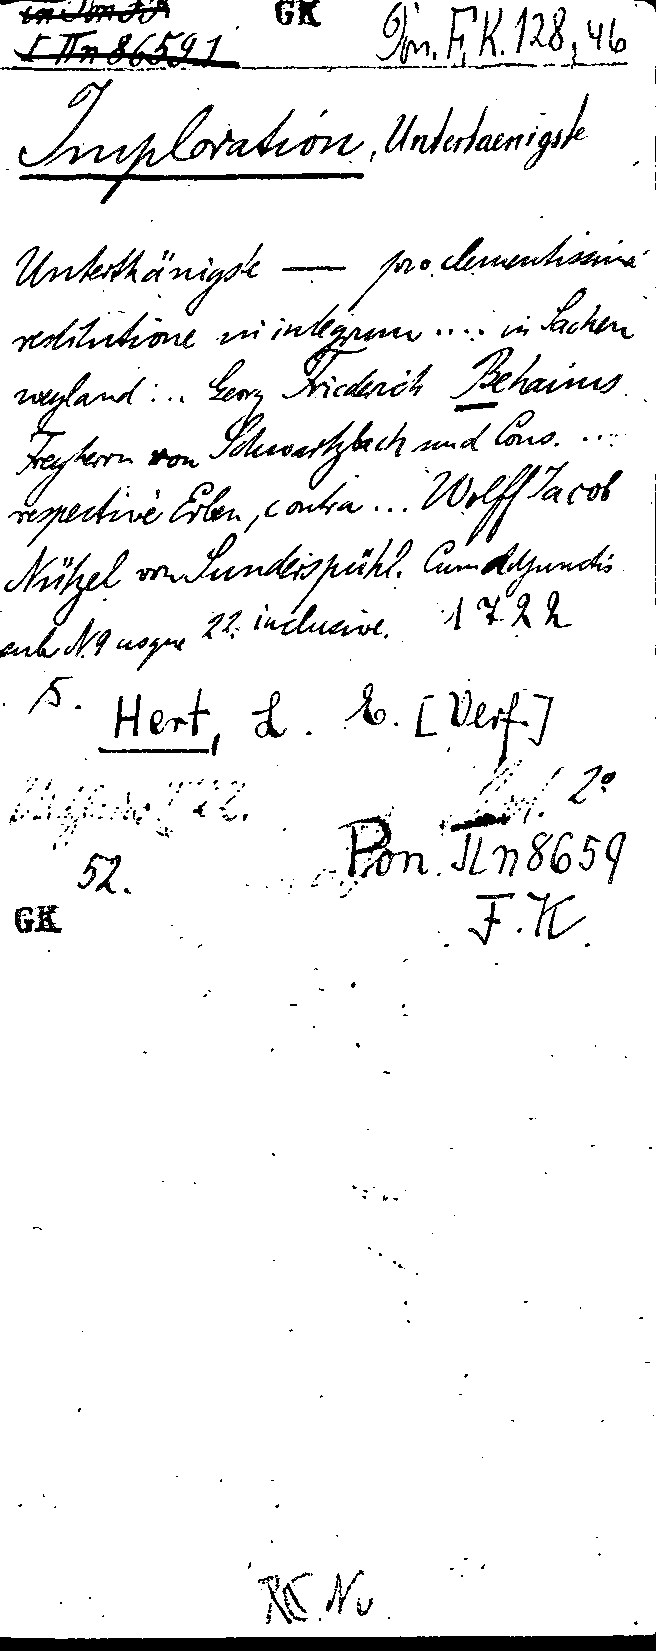 in Pon F.K
GK
Pon. F.K. 128, 46
I IIn 8659 1
Imploration, Untertaenigste
Unterthänigste — pro clementissima
restitutione in integrum .... in Sachen
weyland ... Georg Friederich Behaims
Freyherrn von Schwartzbach und Cons. ...
respective Erben, contra ... Wolff Jacob
Nützel von Sunderspühl. Cum adjunctis
sub N. 9 usque 22. inclusive. 1722
Hert, L. E. [Verf.]
2°
52.
Pon. IIn 8659
GK
F.K.